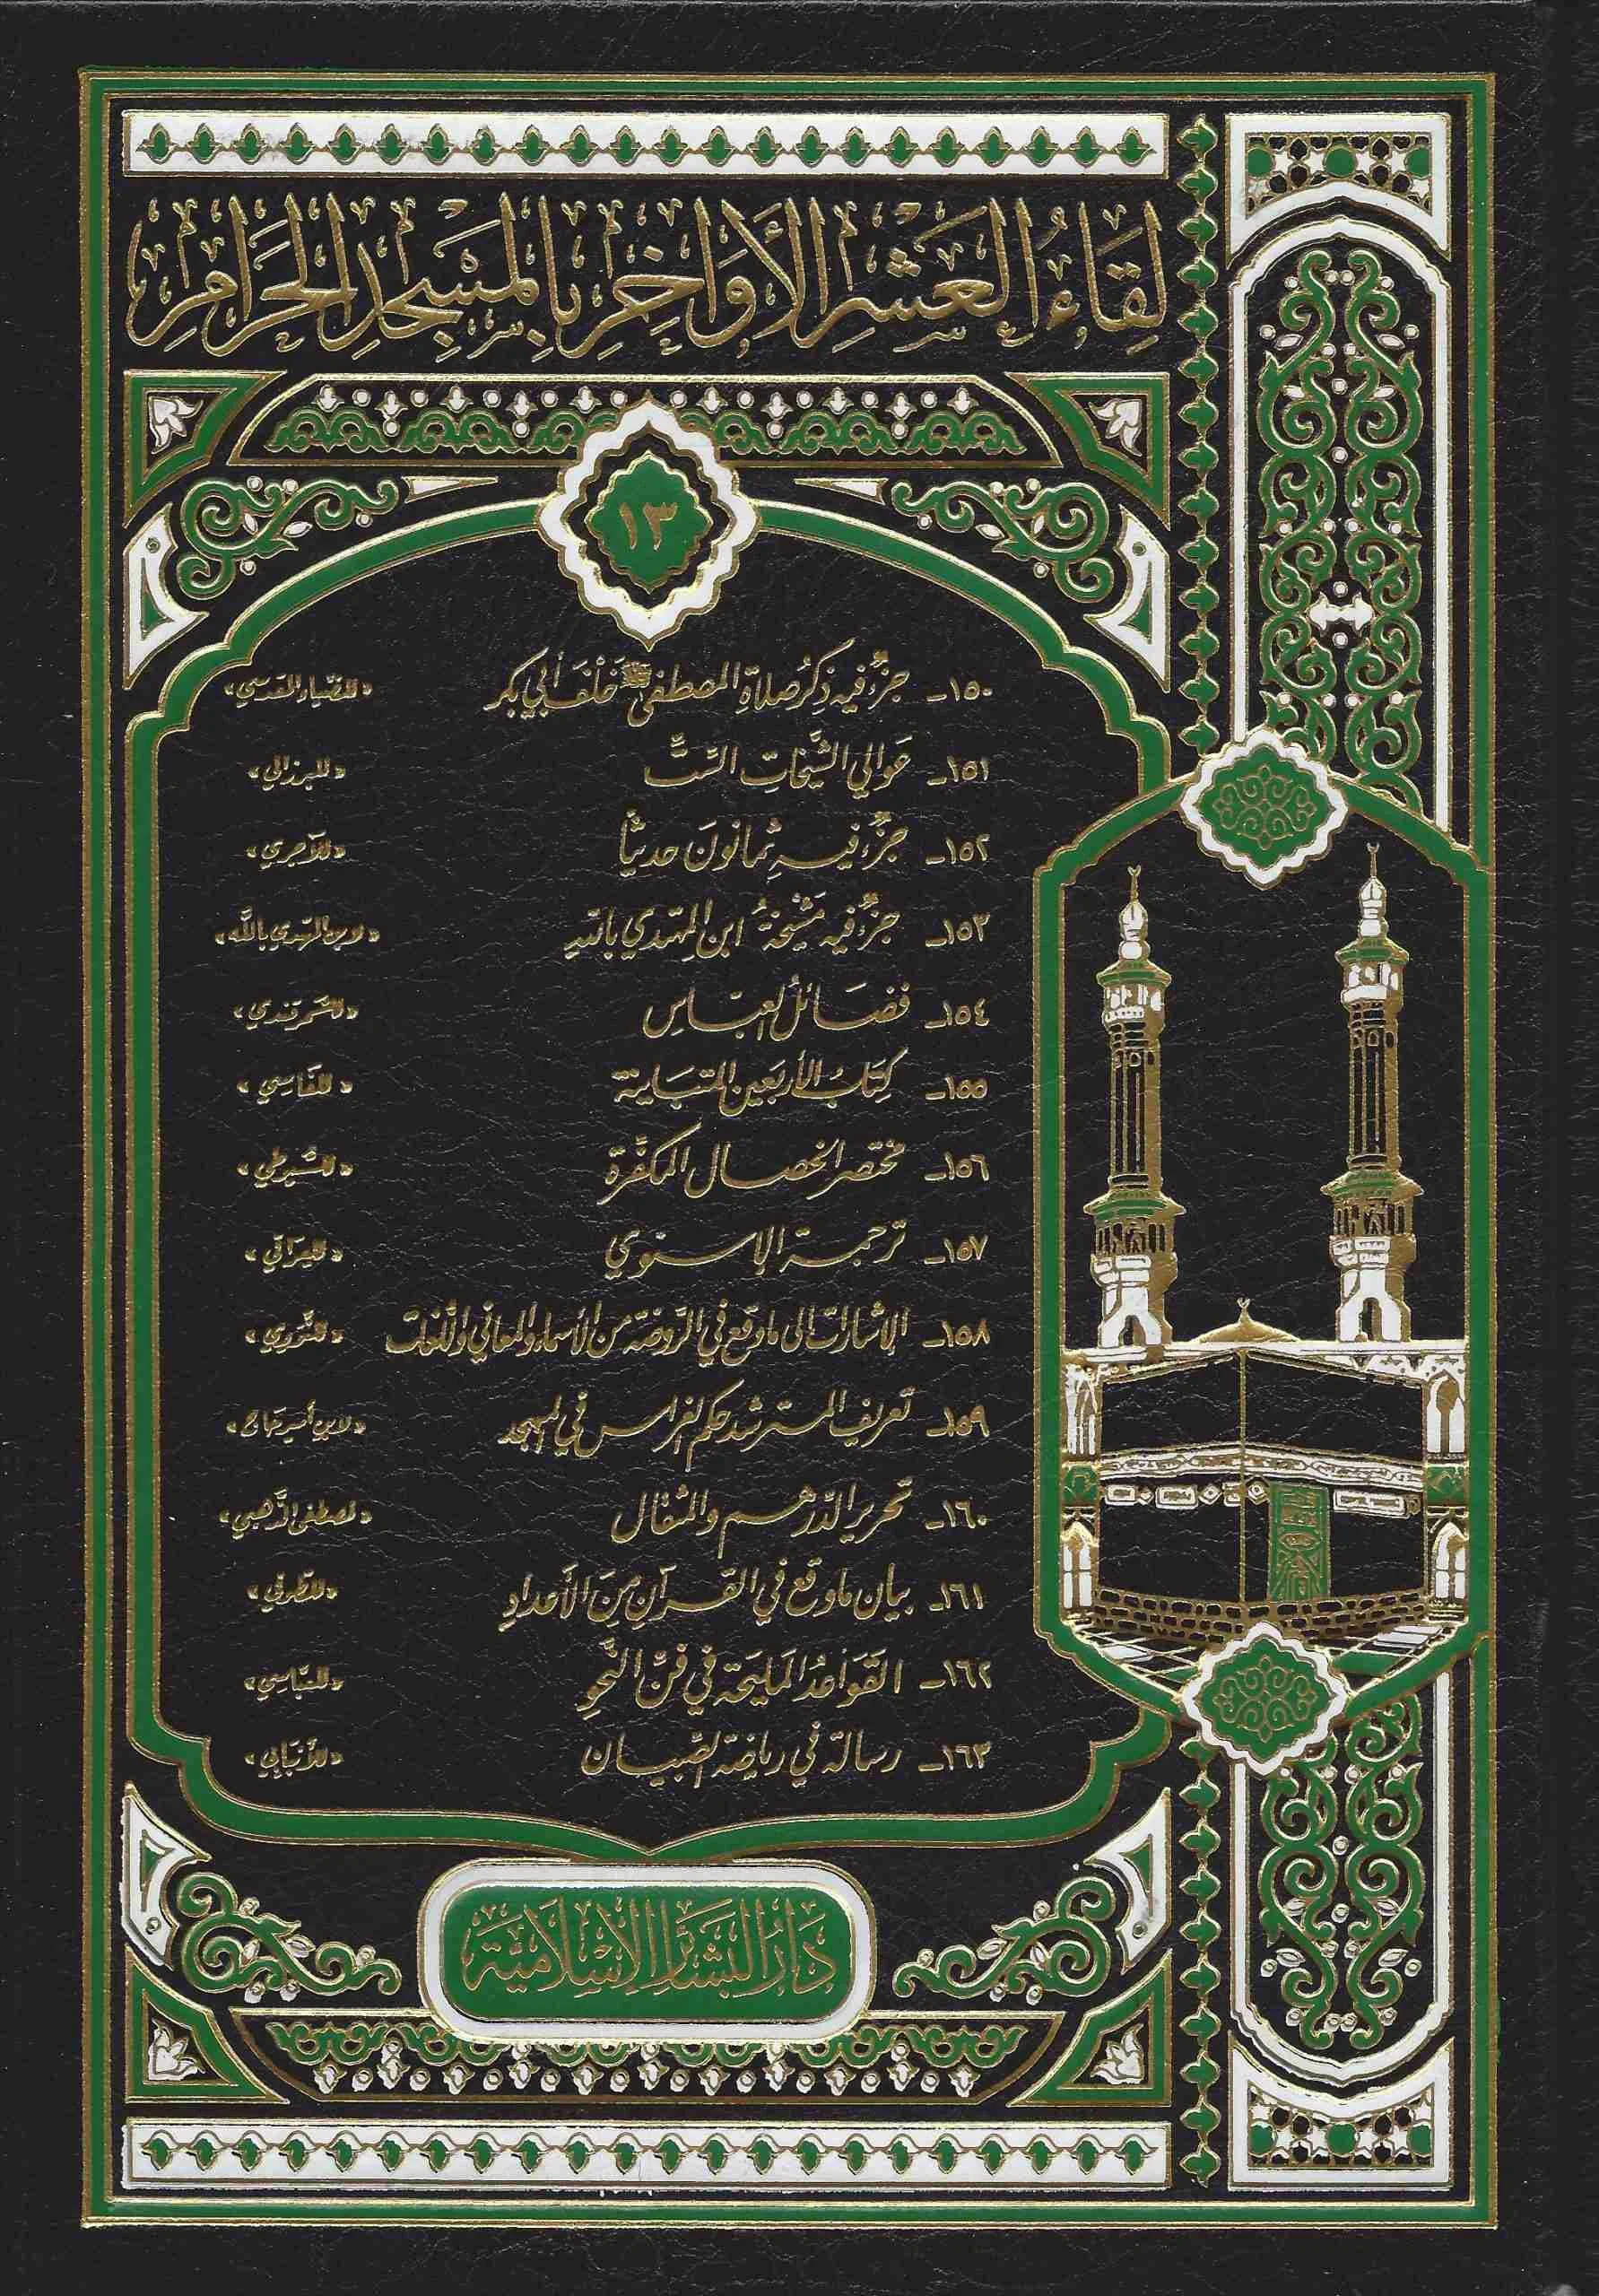 لِقَاءُ العَشْرِ الأَوَاخِرِ بِالمَسْجِدِ الحَرَامِ
١٣
١٥٠ـ جزءٌ فيه ذِكرُ صلاةِ المصطفى ﷺ خَلْفَ أبي بكر «للضياء المقدسي»
١٥١ـ عَوالي الشَّيخات السِّتِّ «للبرزالي»
١٥٢ـ جزءٌ فيه ثمانونَ حديثاً «للآجري»
١٥٣ـ جزءٌ فيه مَشْيَخةُ ابن المهتدي بالله «لابن المهتدي بالله»
١٥٤ـ فضائل العبّاس «للسَّمرقندي»
١٥٥ـ كتابُ الأربَعين المتبَاينة «للفَاسي»
١٥٦ـ مختصر الخصال المكفّرة «للسُّيوطي»
١٥٧ـ ترجمة الإسنوي «للعِراقي»
١٥٨ـ الإشارات إلى ما وقع في الرَّوضة من الأسماء والمعاني واللُّغات «للنَّووي»
١٥٩ـ تعريف المسترشد حكم الغراس في المسجد «لابن أمير حاج»
١٦٠ـ تحرير الدّرهم والمثقال «لمصطفى الذَّهبي»
١٦١ـ بيان ما وقع في القرآنِ مِنَ الأعدادِ
١٦٢ـ القَواعدُ المَليحَة في فَنِّ النَّحْوِ «للعبّاسي»
١٦٣ـ رسالة في رياضة الصِّبيان «للأَنْبَابي»
دَارُ البَشَائِرِ الإِسْلَامِيَّة